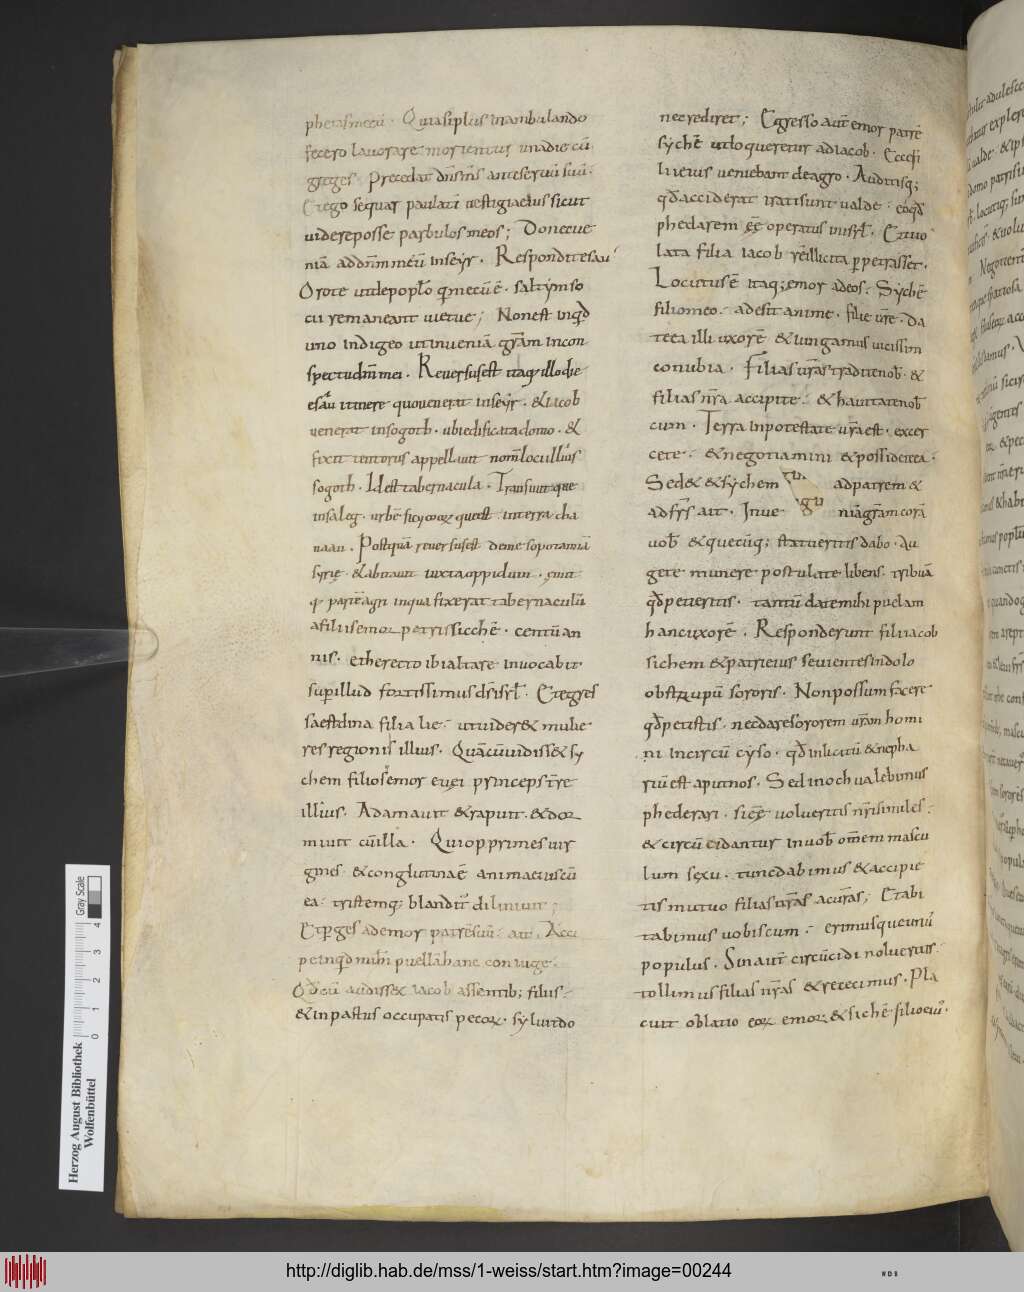 phetasmecū · Quasiplus inambulando
fecero lavorare morientur unadie cū
greges · Precedat dn̄sm̄s anteservū suū ·
Etego sequar paulati vestigiaeius sicut
videreposse parbulosmeos ; Donecve
niā addn̄mmeū inseyr · Respondit esau
Orote utdepoplo qmecūē · saltimso
cii remaneant vietue ; Nonest inqd
uno indigeo utinveniā grām incon
spectudnīmei · Reversusest itaq illodie
esau itinere quovenerat inseyr · &iacob
venerat insogoth · ubiedificatadomo · &
fixit tentorius appellavit nom̄lociillius
sogoth · Idest tabernacula · Transivitque
insaleg urbē sicymor queest interra cha
naan · Postquā reversusest deme sopotamiā
syrie · &abitavit iuxtaoppidum · emit
q partē agri inqua fixerat tabernaculū
afiliisemorpatrissicchē · centū an
nis · etherecto ibialtare invocabit
super illud fortissimusds̄isrl̄ · Etegres
saestdina filia lie · utvider& mulie
res regionis illius · Quācūvidiss& sy
chem filiosemor evei princepster̄e
illius · Adamavit &rapuit · &dor
mivit cūilla · Quiopprimes vir
gines &conglutinaē animaeiuscū
ea · tristemq; blandit dilinivit ;
Etperges ademor patrēsuū · ait · Acci
peinqdmihi puellāhanc coniuge ·
Qdcū audiss& iacob assentib; filiis
&inpastus occupatis pecor · syluitdo
necrediret ; Egresso aut̄ emor patrē
sychē utloqueretur adiacob · Ecce fi
liieius veniebant deagro · Auditisq;
qd̄acciderat iratisunt valde · eoqd̄
phedarem ēē operatus inisrl̄ · Etvio
lata filia iacob rēillicita ppetrasset ·
Locutusē itaq; emor adeos · Sychē
filiomeo · adesit anime · filie vr̄e · da
teea illi uxorē &iungamus vicissim
conubia · Filiasvrās traditenob̄ · &
filiasnrā accipite · &havitatenob̄
cum · Terra inpotestate vrāest · exer
cete · &negotiamini &possidetea ·
Sed& &sychem adpatrem &
adfrs̄ ait · Inve niāgrāmcorā
vob̄ &quecūq; statveritis dabo · Au
gete munere postulate libens · tribuā
qd̄petieritis · tantū datemihi puelam
hancuxorē · Responderunt filiiacob
sichem &patrieius sevientesindolo
obstrupū sororis · Nonpossumfacere
qd̄petistis · necdaresororem vrām homi
ni incircū cyso · qd̄ inlicitū &nepha
riūest aputnos · Sed inoc hvalebimus
phederari · siceē volueritis nrīsimiles ·
&circū cidantur invob̄ om̄em mascu
lum sexu · tuncdabimus &accipie
tis mutuo filias vrās acnrās ; Etabi
tabimus vobiscum · erimusqueunū
populus · Sinaut̄ circūcidi nolueritis ·
tollimusfilias nrās &recedimus · Pla
cuit oblatio eor emor &sichē filioeiu'
Herzog August Bibliothek
Wolfenbüttel
Gray Scale
0 1 2 3 4
http://diglib.hab.de/mss/1-weiss/start.htm?image=00244